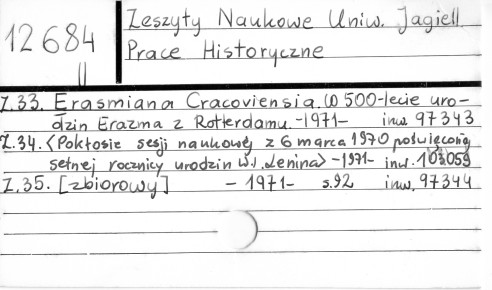 12684
II
Zeszyty Naukowe Uniw. Jagiell.
Prace Historyczne
Z.33. Erasmiana Cracoviensia. W 500-lecie uro-
dzin Erazma z Rotterdamu. -1971- inw. 97343
Z.34. <Pokłosie sesji naukowej z 6 marca 1970 poświęconej
setnej rocznicy urodzin W.I. Lenina> -1971- inw. 103059
Z.35. [zbiorowy] - 1971- s.92 inw. 97344